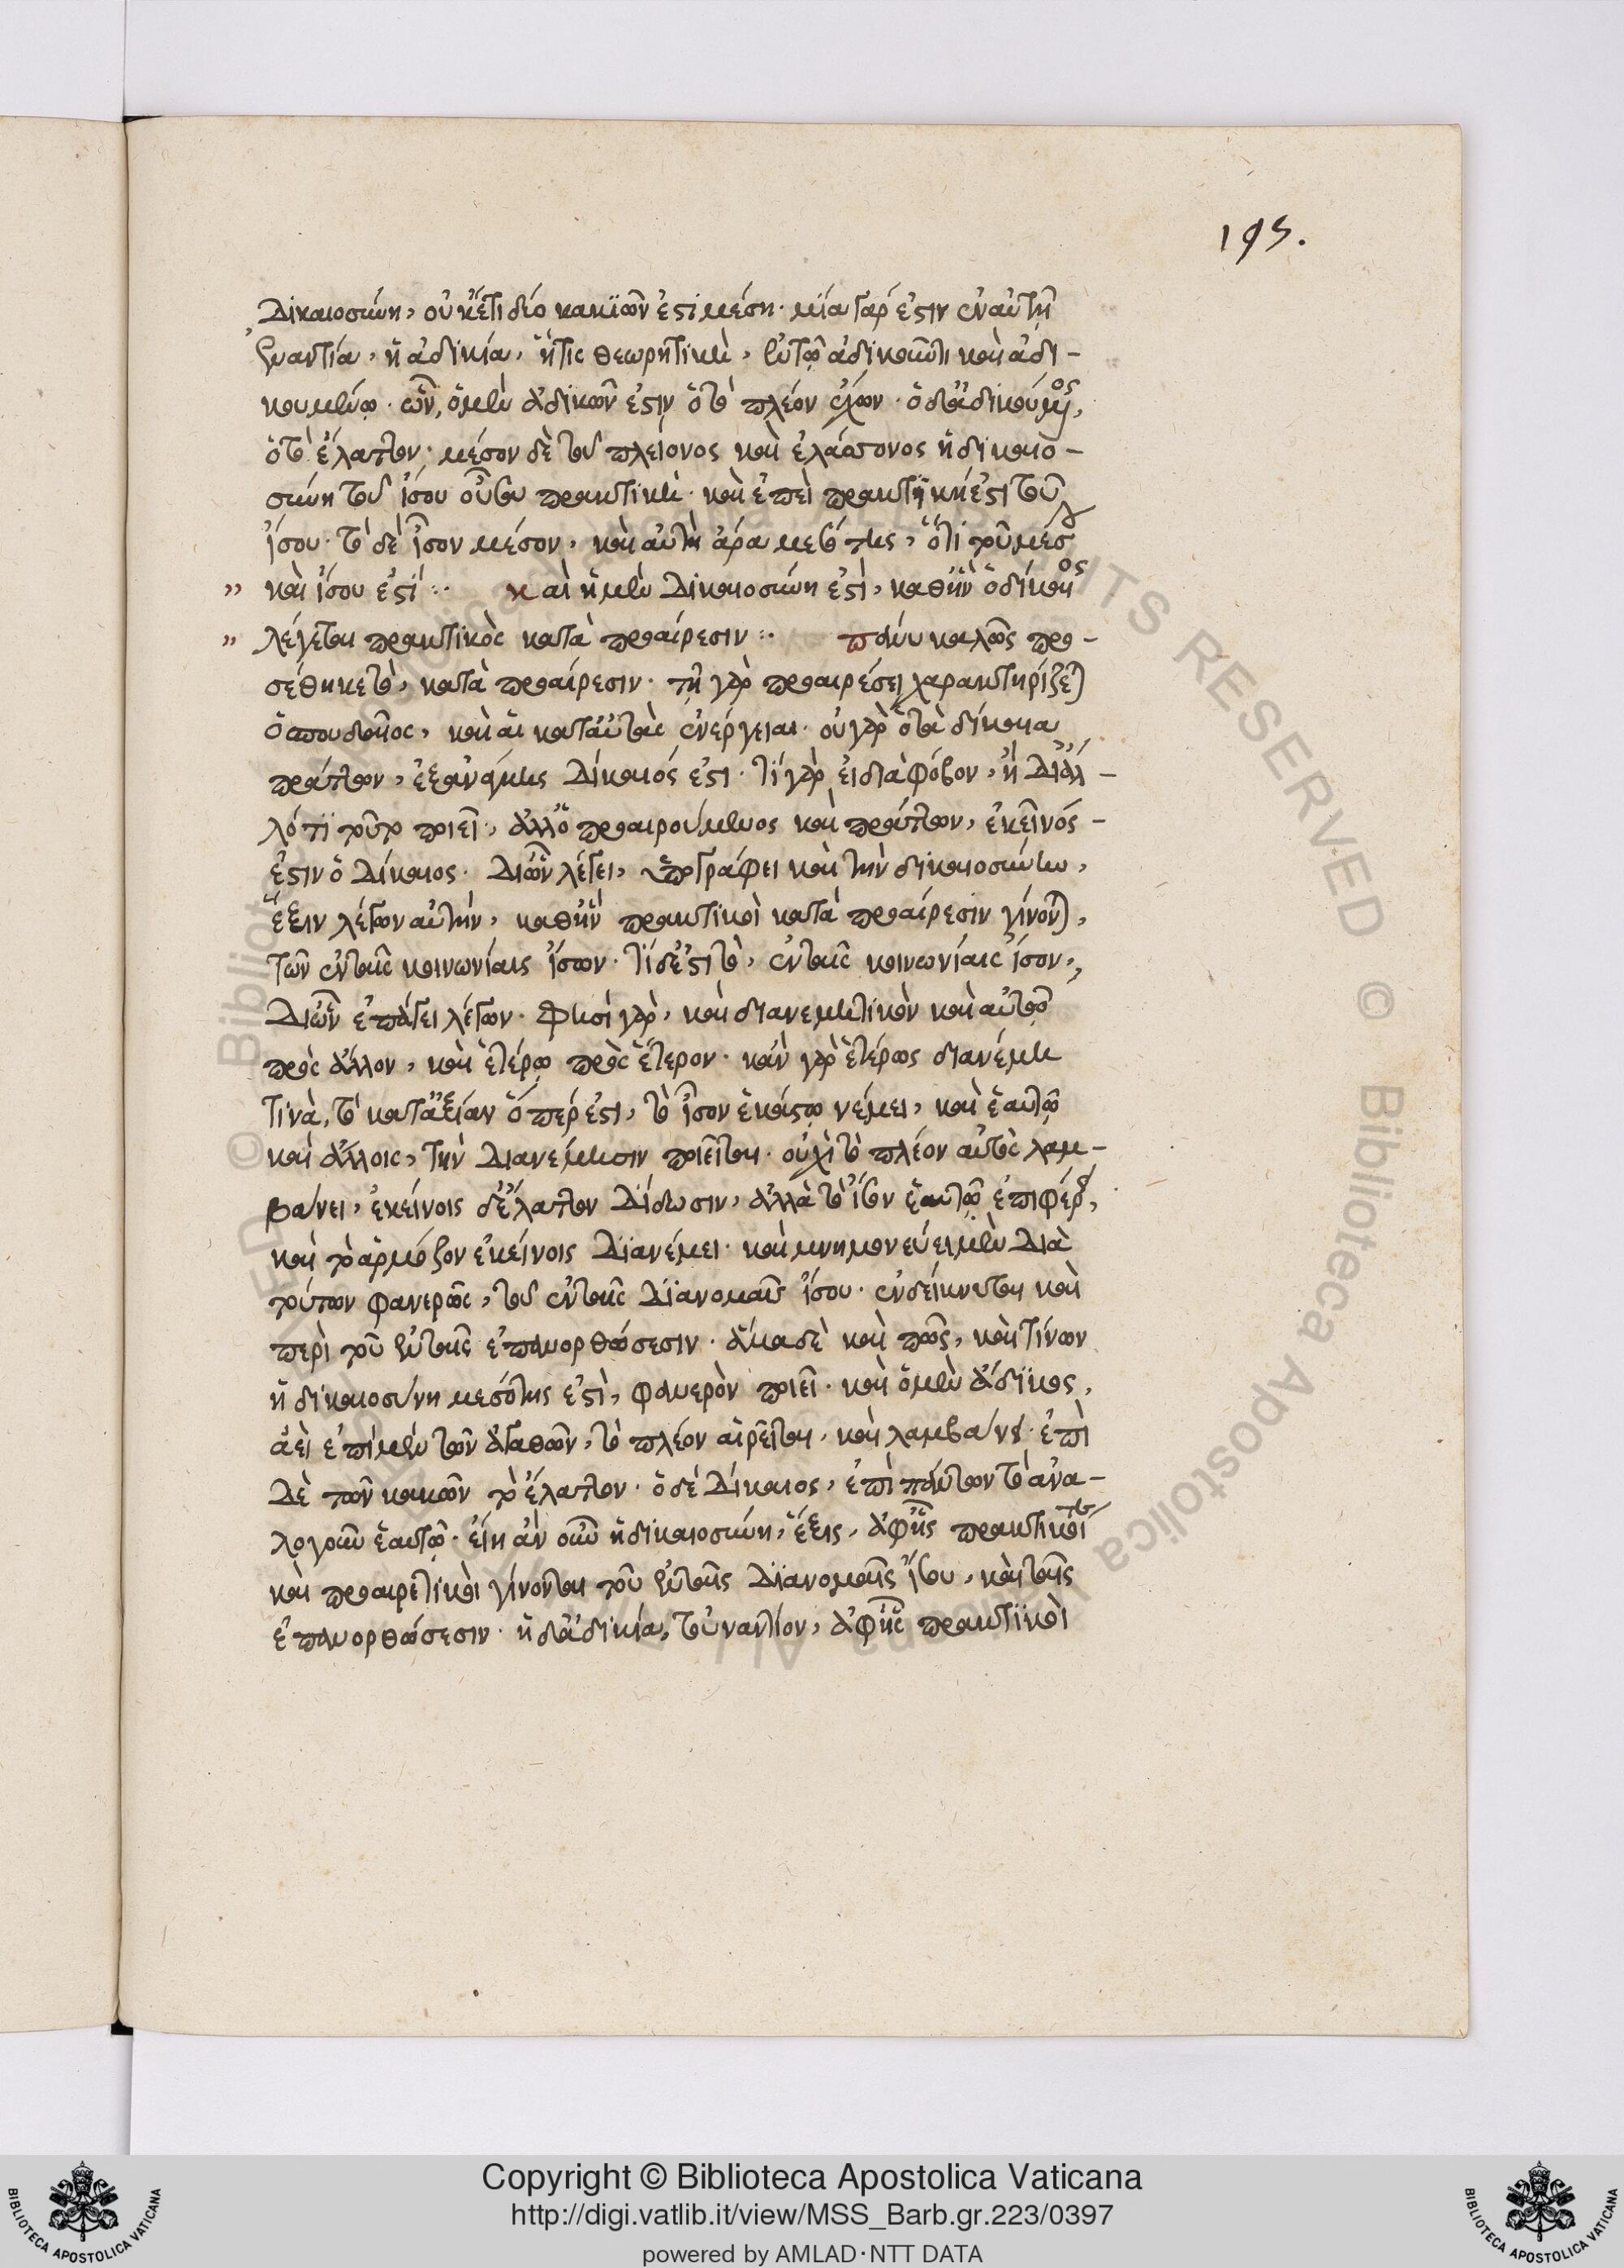 195.
δικαιοσύνη, οὐκέτι δύο κακιῶν ἐστι μέση· μία γάρ ἐστιν ἐν αὐτῇ
ἐναντία, ἡ ἀδικία, ἥτις θεωρητικὴ, ἐν τῷ ἀδικοῦντι καὶ ἀδι-
κουμένῳ· ὧν, ὁ μὲν ἀδικῶν ἐστιν ὁ τὸ πλέον ἔχων· ὁ δὲ ἀδικούμενος,
ὁ τὸ ἔλαττον· μέσον δὲ τοῦ πλείονος καὶ ἐλάσσονος ἡ δικαιο-
σύνη τοῦ ἴσου οὖσα πρακτικὴ· καὶ ἐπεὶ πρακτικὴ ἐστι τοῦ
ἴσου· τὸ δὲ ἴσον μέσον, καὶ αὐτὴ ἄρα μεσότης, ὅτι τοῦ μέσου
" καὶ ἴσου ἐστί :· καὶ ἡ μὲν δικαιοσύνη ἐστὶ, καθ' ἣν ὁ δίκαιος
" λέγεται πρακτικὸς κατὰ προαίρεσιν :· πάνυ καλῶς προ-
σέθηκε τὸ, κατὰ προαίρεσιν· τῇ γὰρ προαιρέσει χαρακτηρίζεται
ὁ σπουδαῖος, καὶ αἱ κατ' αὐτὰς ἐνέργειαι· οὐ γὰρ ὁ τὰ δίκαια
πράττων, ἐξ ἀνάγκης δίκαιός ἐστι· τί γὰρ εἰ διὰ φόβον, ἢ δι' ἄλ-
λό τι τοῦτο ποιεῖ, ἀλλ' ὁ προαιρούμενος καὶ πράττων, ἐκεῖνός -
ἐστιν ὁ δίκαιος. δι' ὧν λέγει, ὑπογράφει καὶ τὴν δικαιοσύνην,
ἕξιν λέγων αὐτὴν, καθ' ἣν πρακτικοὶ κατὰ προαίρεσιν γίνονται,
τῶν ἐν ταῖς κοινωνίαις ἴσων· τί δέ ἐστι τὸ, ἐν ταῖς κοινωνίαις ἴσον,
δι' ὧν ἐπάγει λέγων· φησὶ γὰρ, καὶ διανεμητικὸν καὶ αὐτῷ
πρὸς ἄλλον, καὶ ἑτέρῳ πρὸς ἕτερον· κἂν γὰρ ἑτέρως διανέμῃ
τινὰ, τὸ κατ' ἀξίαν ὅπερ ἐστι, τὸ ἴσον ἑκάστῳ νέμει, καὶ ἑαυτῷ
καὶ ἄλλοις, τὴν διανέμησιν ποιεῖται· οὐχὶ τὸ πλέον αὐτὸς λαμ-
βάνει, ἐκείνοις δ' ἔλαττον δίδωσιν, ἀλλὰ τὸ ἴσον ἑαυτῷ ἐπιφέρει,
καὶ τὸ ἁρμόζον ἐκείνοις διανέμει· καὶ μνημονεύει μὲν διὰ
τούτων φανερῶς, τοῦ ἐν ταῖς διανομαῖς ἴσου· ἐνδείκνυται καὶ
περὶ τοῦ ἐν ταῖς ἐπανορθώσεσιν· ἅμα δὲ καὶ πῶς, καὶ τίνων
ἡ δικαιοσύνη μεσότης ἐστὶ, φανερὸν ποιεῖ· καὶ ὁ μὲν ἄδικος,
ἀεὶ ἐπὶ μὲν τῶν ἀγαθῶν, τὸ πλέον αἱρεῖται, καὶ λαμβάνει· ἐπὶ
δὲ τῶν κακῶν τὸ ἔλαττον· ὁ δὲ δίκαιος, ἐπὶ πάντων τὸ ἀνα-
λογοῦν ἑαυτῷ· εἴη ἂν οὖν ἡ δικαιοσύνη, ἕξις, ἀφ' ἧς πρακτικοί τε
καὶ προαιρετικοὶ γίνονται τοῦ ἐν ταῖς διανομαῖς ἴσου, καὶ ταῖς
ἐπανορθώσεσιν· ἡ δὲ ἀδικία, τοὐναντίον, ἀφ' ἧς πρακτικοὶ
Copyright © Biblioteca Apostolica Vaticana
http://digi.vatlib.it/view/MSS_Barb.gr.223/0397
powered by AMLAD·NTT DATA